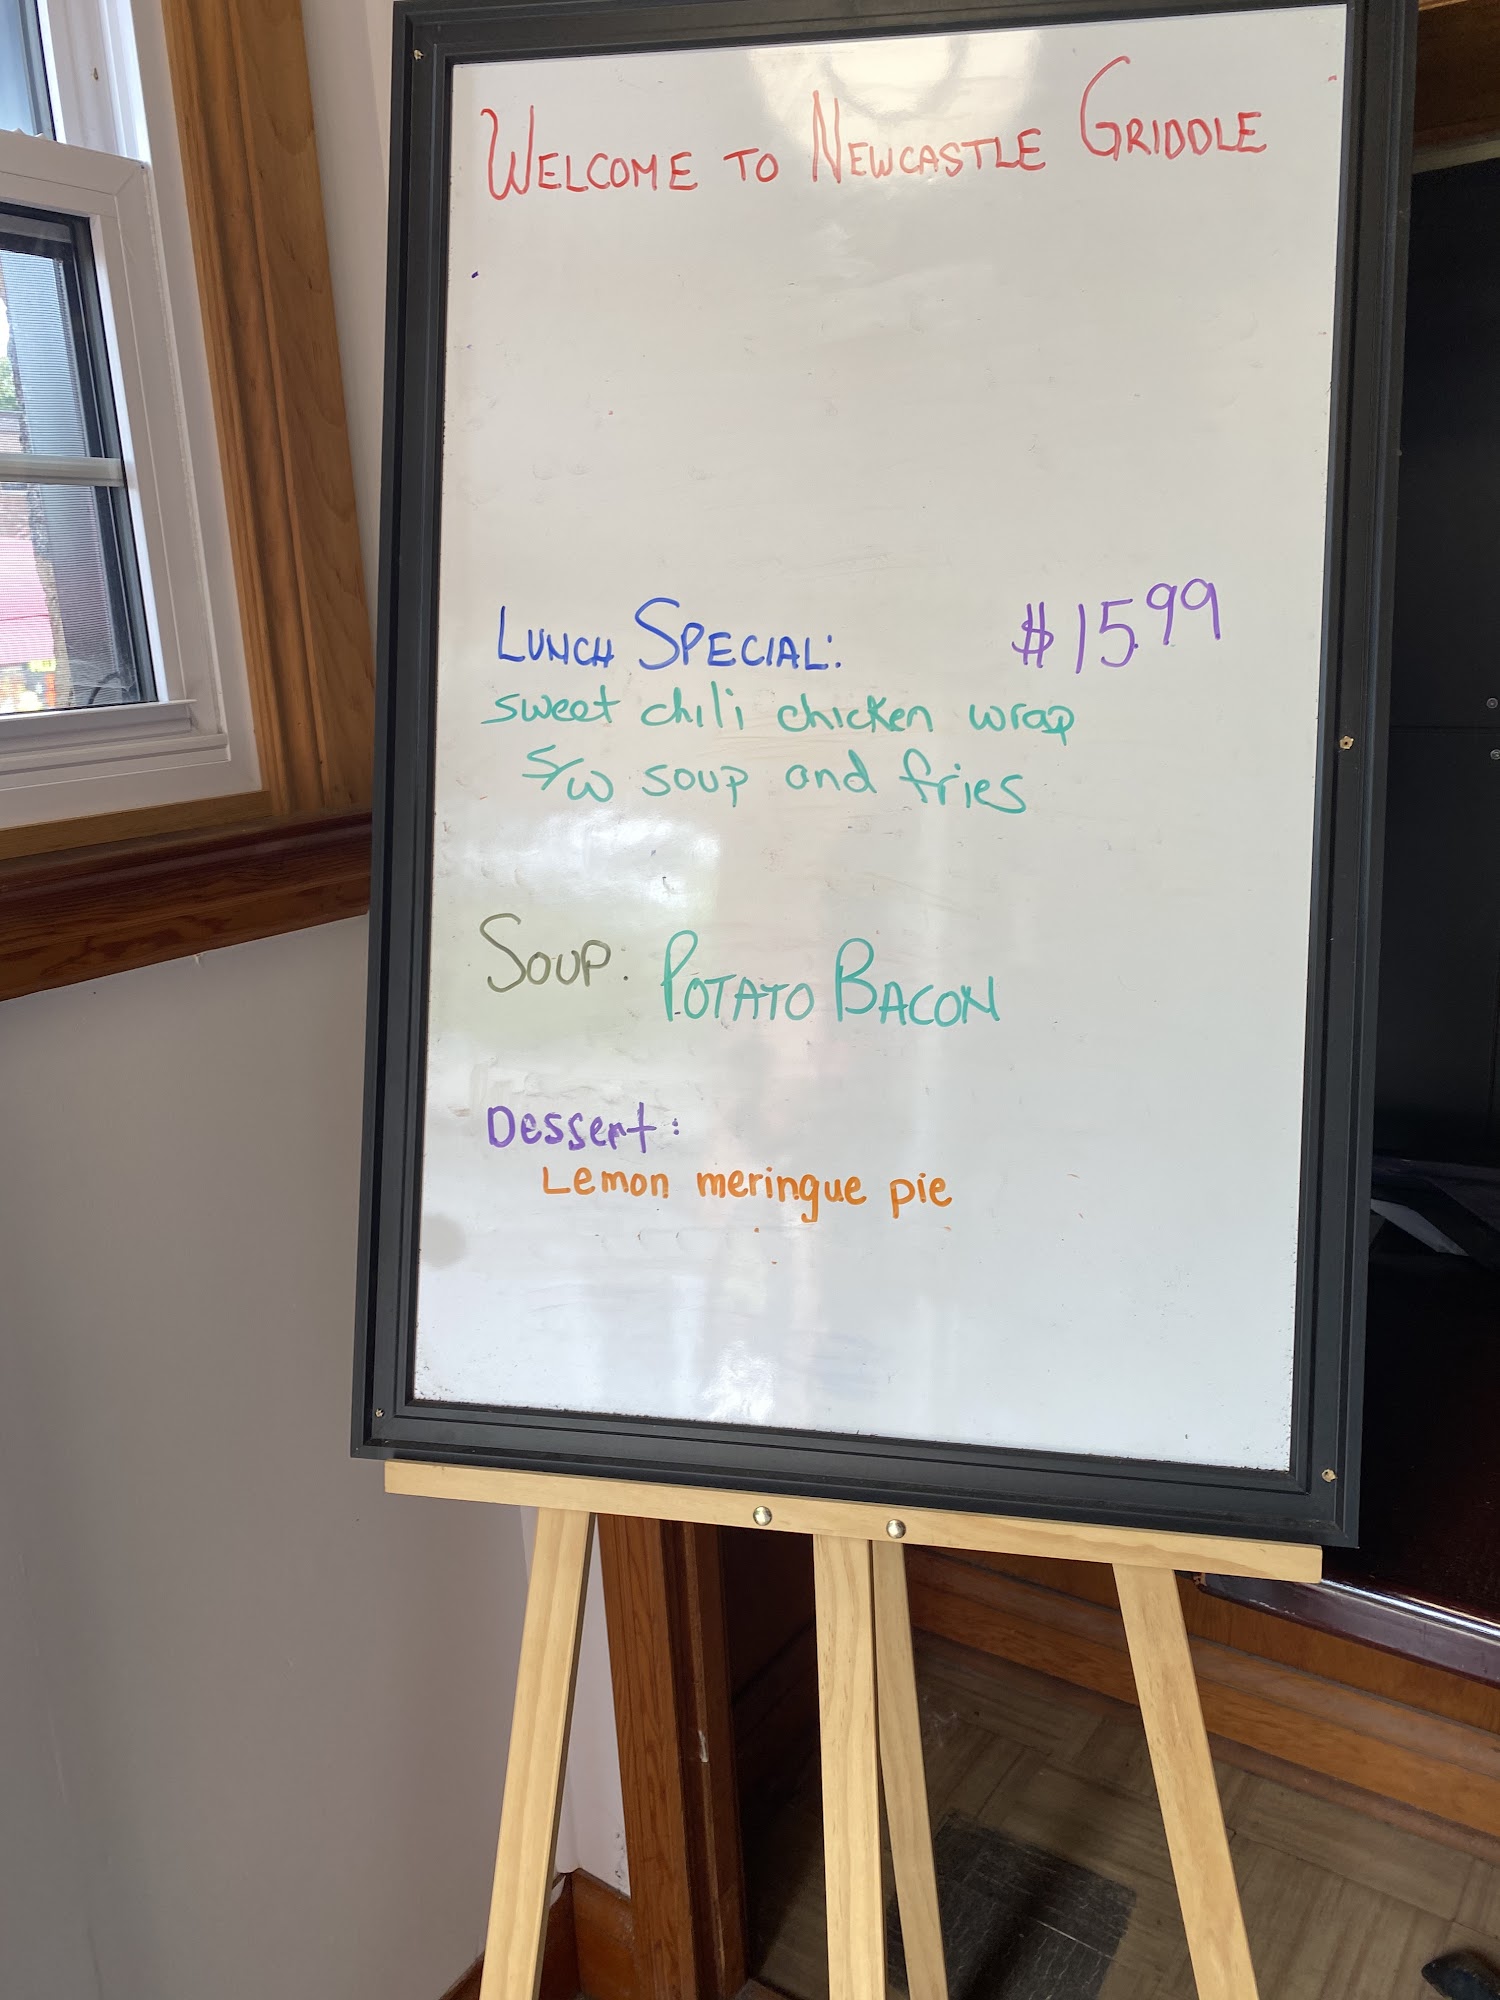 WELCOME TO NEWCASTLE GRIDDLE
LUNCH SPECIAL: $15.99
sweet chili chicken wrap
s/w soup and fries
SOUP: POTATO BACON
Dessert:
Lemon meringue pie